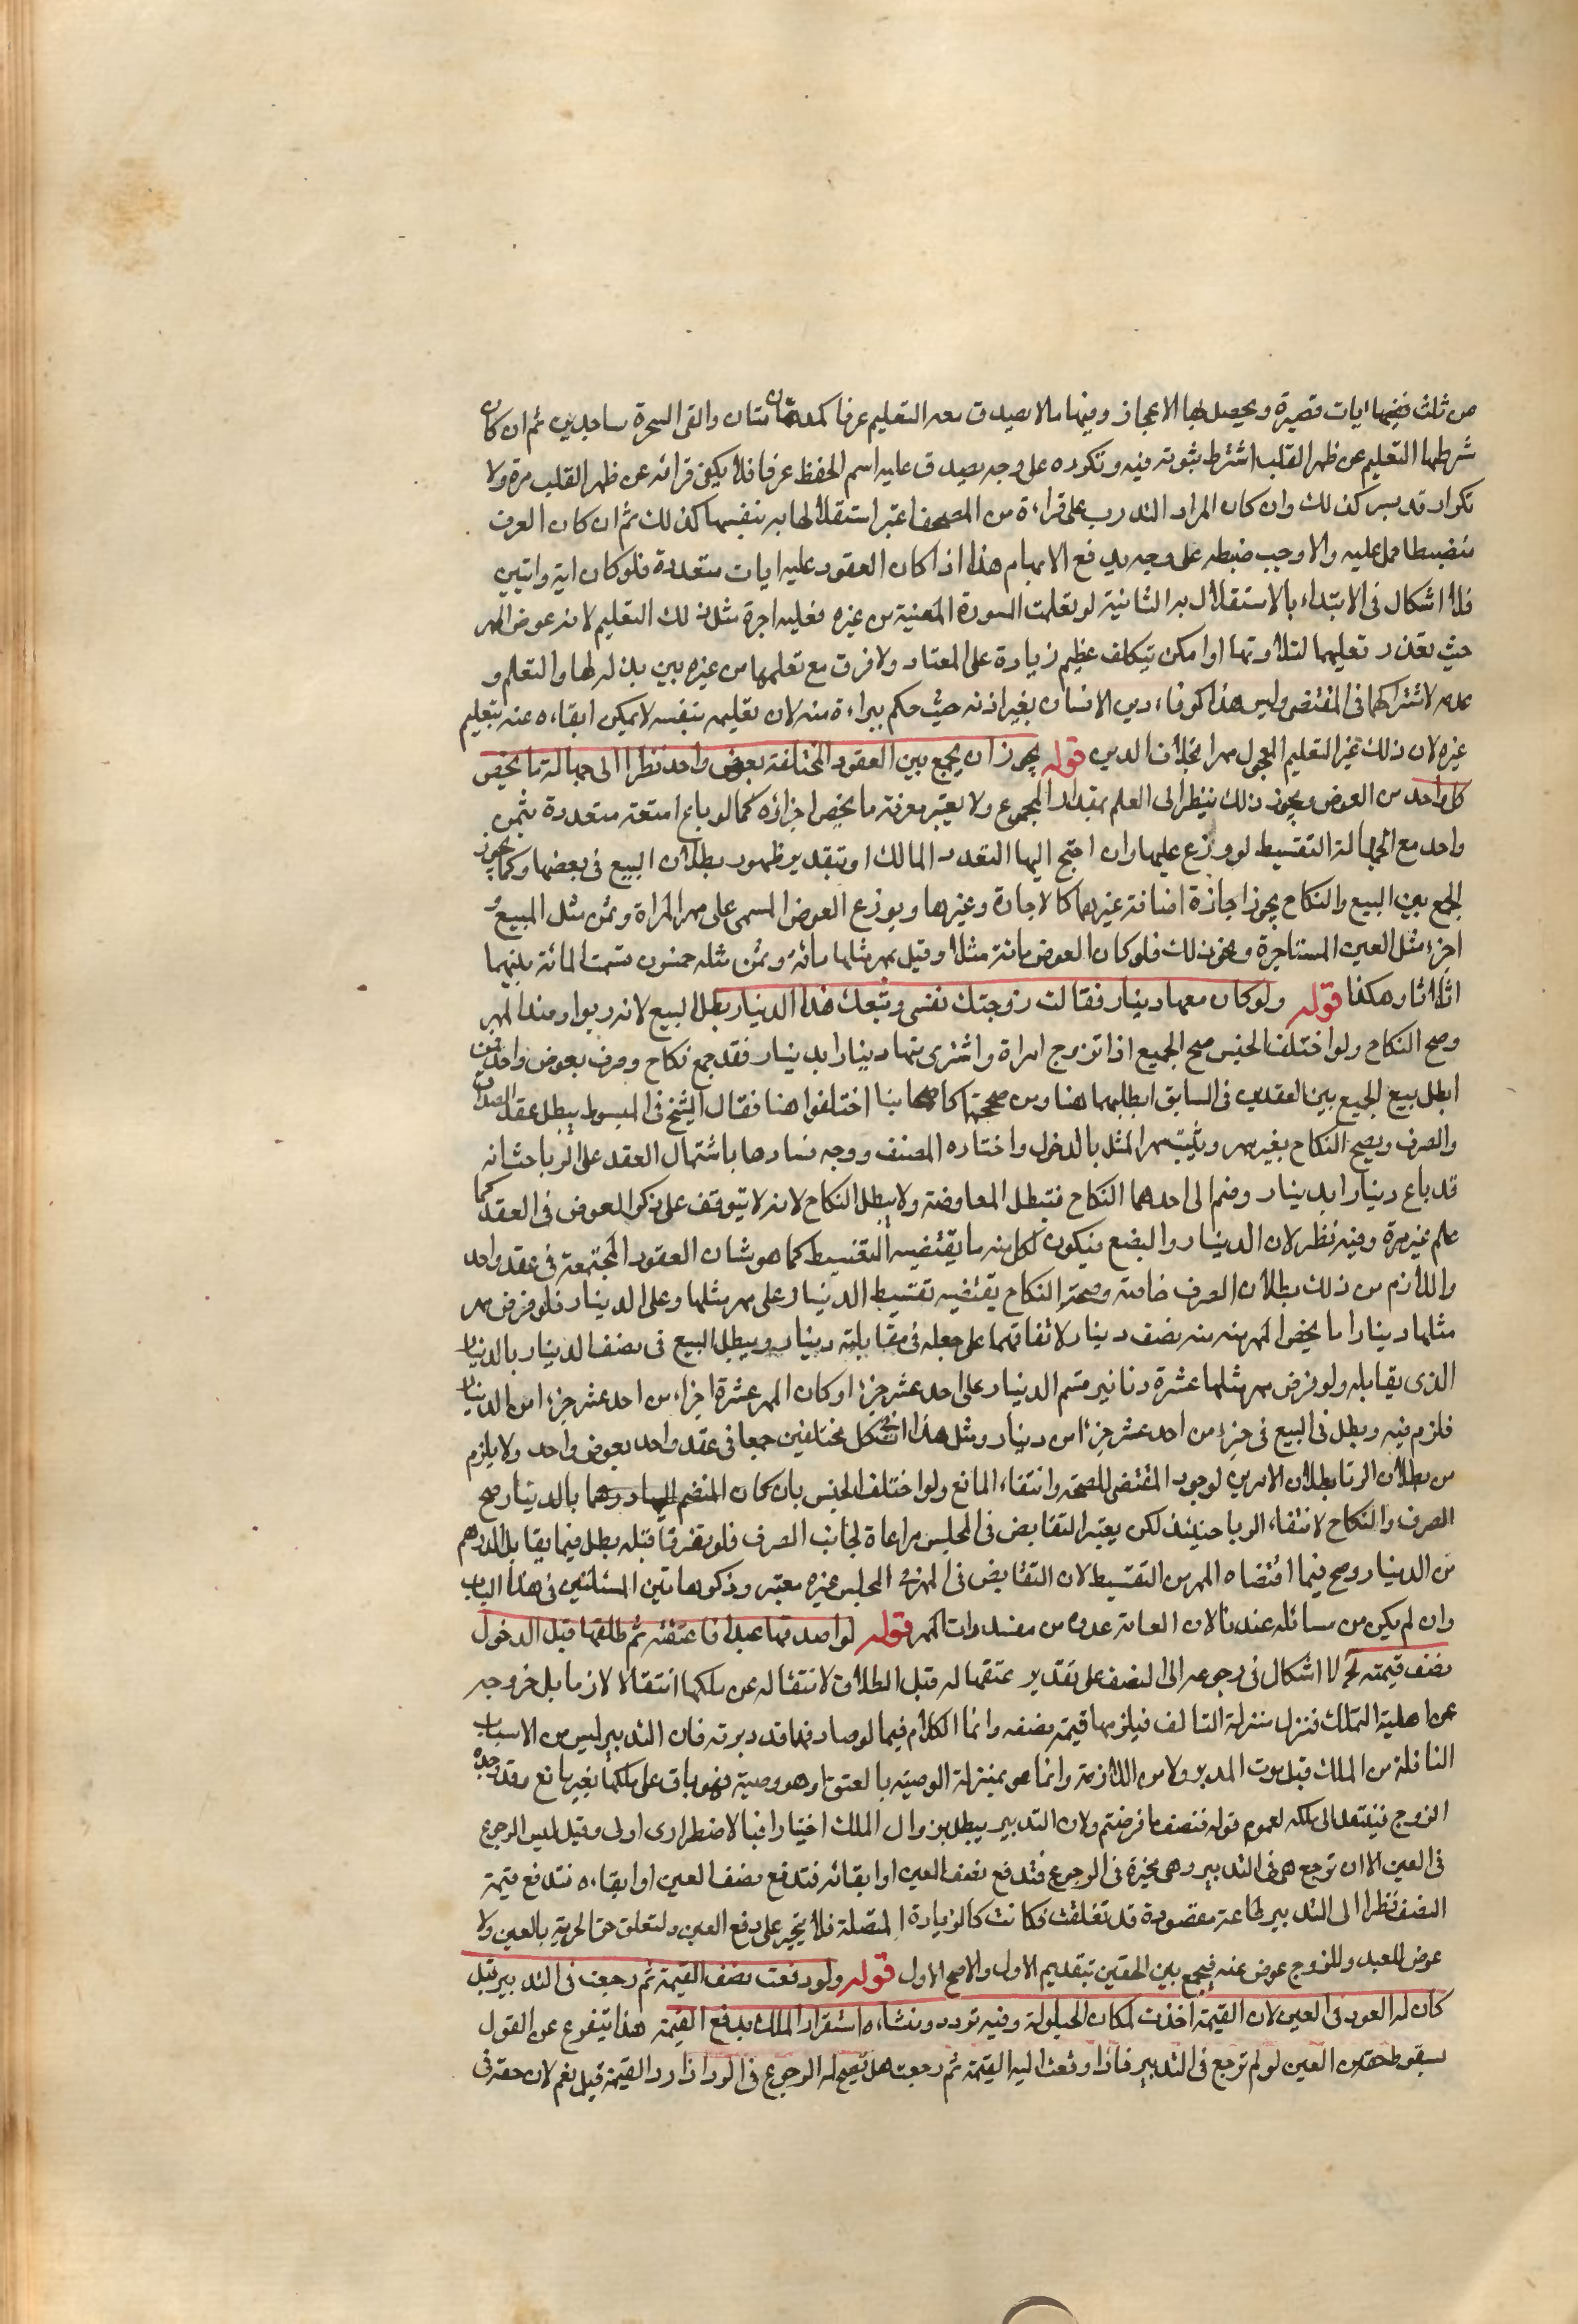 من ثلث ففيها ايات قصيرة ويحصل بها الاعجاز وفيها ما لا يصدق معه التعليم عرفا كمدهامتان والقى السحرة ساجدين ثم ان كان
شرطهما التعليم عن ظهر القلب اشترط ثبوته فيه وتكرره على وجه يصدق عليه اسم الحفظ عرفا فلا يكفى قرائته عن ظهر القلب مرة ولا
تكرار قد يسير كذلك وان كان المراد التدرب على قراءة من المصحف اعتبر استقلالها به بنفسها كذلك ثم ان كان العرف
منضبطا حمل عليه والا وجب ضبطه على وجه يدفع الابهام هذا اذا كان المعقود عليه ايات متعددة فلو كان اية وايتين
فلا اشكال فى الابتداء بالاستقلال به الثانية لو تعلمت السورة المعينة من غيره فعليه اجرة مثل ذلك التعليم لانه عوض المهر
حيث تعذر وتعليمها لتلاوتها او امكن بتكلف عظيم زيادة على المعتاد ولا فرق مع تعلمها من غيره بين بذله لها والتعلم و
عدمه لاشتراكهما فى المقتضى وليس هذا كوفاء دين الانسان بغير اذنه حيث حكم ببراءة منه لان تعليمه بنفسه لا يمكن ابقاءه عنه بتعليم
غيره لان ذلك غير التعليم المجعول مهرا بخلاف الدين قوله يجوز ان يجمع بين العقود المختلفة بعوض واحد نظرا الى جهالة ما يخص
كل واحد من العوض ويجوز ذلك ينظر الى العلم بمقدار المجموع ولا يعتبر معرفة ما يخص اجزائه كما لو باع امتعة متعددة بثمن
واحد مع الجهالة التقسيط لو وزع عليها وان احتيج اليها لتعدد المالك او بتقدير ظهور بطلان البيع فى بعضها وكما يجوز
الجمع بين البيع والنكاح يجوز اجازة اضافة غيرهما كالاجارة وغيرها ويوزع العوض المسمى على مهر المراة وثمن مثل المبيع و
اجرة مثل العين المستاجرة ونحو ذلك فلو كان العوض مائة مثلا وقيل مهر مثلها مائة وثمن مثله خمسون قسمت المائة بينهما
اثلاثا وهكذا قوله ولو كان معها دينار فقالت زوجتك نفسى وبعتك هذا الدينار بطل البيع لانه ربوا وفسد المهر
وصح النكاح ولو اختلف الجنس صح الجميع اذا تزوج امراة واشترى منها دينارا بدينار فقد جمع نكاح وصرف بعوض واحد فمن
ابطل بيع الجمع بين العقدين فى السابق ابطلهما هنا ومن صححه كاصحابنا اختلفوا هنا فقال الشيخ فى المبسوط يبطل عقد الصداق
والصرف ويصح النكاح بغير مهر ويثبت مهر المثل بالدخول واختاره المصنف ووجه فسادها باشتمال العقد على الربا حيث انه
قد باع دينارا بدينار وضم الى احدهما النكاح فتبطل المعاوضة ولا يبطل النكاح لانه لا يتوقف على ذكر العوض فى العقد كما
علم غير مرة وفيه نظر لان الدينار والبضع فيكون لكل منه ما يقتضيه التقسيط كما هو شان العقود المجتمعة فى عقد واحد
واللازم من ذلك بطلان الصرف خاصة وصحة النكاح يقتضيه تقسيط الدينار على مهر مثلها وعلى الدينار فلو فرض مهر
مثلها دينارا ما يخص المهر منه نصف دينار لاتفاقهما على جعله فى مقابلته دينار ويبطل البيع فى نصف الدينار بالدينار
الذى يقابله ولو فرض مهر مثلها عشرة دنانير قسم الدينار على احد عشر جزءا وكان المهر عشرة اجزاء من احد عشر جزءا من الدينار
فلزم فيه وبطل فى البيع فى جزء من احد عشر جزءا من دينار ومثل هذا اتى كل مختلفين جمعا فى عقد واحد بعوض واحد ولا يلزم
من بطلان الربا بطلان الامرين لوجود المقتضى للصحة وانتفاء المانع ولو اختلف الجنس بان كان المنضم اليها درهما بالدينار صح
الصرف والنكاح لانتفاء الربا حينئذ لكن يعتبر التقابض فى المجلس مراعاة لجانب الصرف فلو تفرقا قبله بطل فيما يقابل الدرهم
من الدينار وصح فيما اقتضاه المهر من التقسيط لان التقابض فى المهر فى المجلس غيره معتبر وذكر هاتين المسئلتين فى هذا الباب
وان لم يكن من مسائله عندنا لان العامة عدوه من مفسدات المهر قوله لو اصدقها عبدا فاعتقته ثم طلقها قبل الدخول
نصف قيمته الخ لا اشكال فى رجوعه الى النصف على تقدير عتقها له قبل الطلاق لانتقاله عن ملكها انتقالا لازما بل خروجه
عن اهلية التملك فنزل منزلة التالف فيلزمها قيمة نصفه وانما الكلام فيما لو صادفها قد دبرته فان التدبير ليس من الاسباب
الناقلة من الملك قبل موت المدبر ولا من اللازمة وانما هو بمنزلة الوصية بالعتق او هو وصية فهو باق على ملكها بغير مانع وقد وجده
الزوج فينتقل الى ملكه لعموم قوله فنصف ما فرضتم ولان التدبير يبطل بزوال الملك اختيارا فبالاضطرارى اولى وقيل ليس الرجوع
فى العين الا ان ترجع هى فى التدبير وهى مخيرة فى الرجوع فتدفع نصف العين او ابقائه فتدفع نصف العين او ابقاءه فتدفع قيمة
النصف نظرا الى التدبير طاعة مقصودة قد تعلقت فكانت كالزيادة المتصلة فلا يجبر على دفع العين ولتعلق حق الحرية بالعين ولا
عوض للعبد وللزوج عوض عنه فيجمع بين الحقين بتقديم الاول والاصح الاول قوله ولو دفعت نصف القيمة ثم رجعت فى التدبير قيل
كان له العود فى العين لان القيمة اخذت لمكان الحيلولة وفيه تردد ومنشاءه استقرار الملك بدفع القيمة هذا يتفرع عن القول
بسقوط حقه من العين لو لم ترجع فى التدبير فاذا دفعت اليه القيمة ثم رجعت هل يصح له الرجوع فى الود اذا رد القيمة قيل نعم لان حقه فى